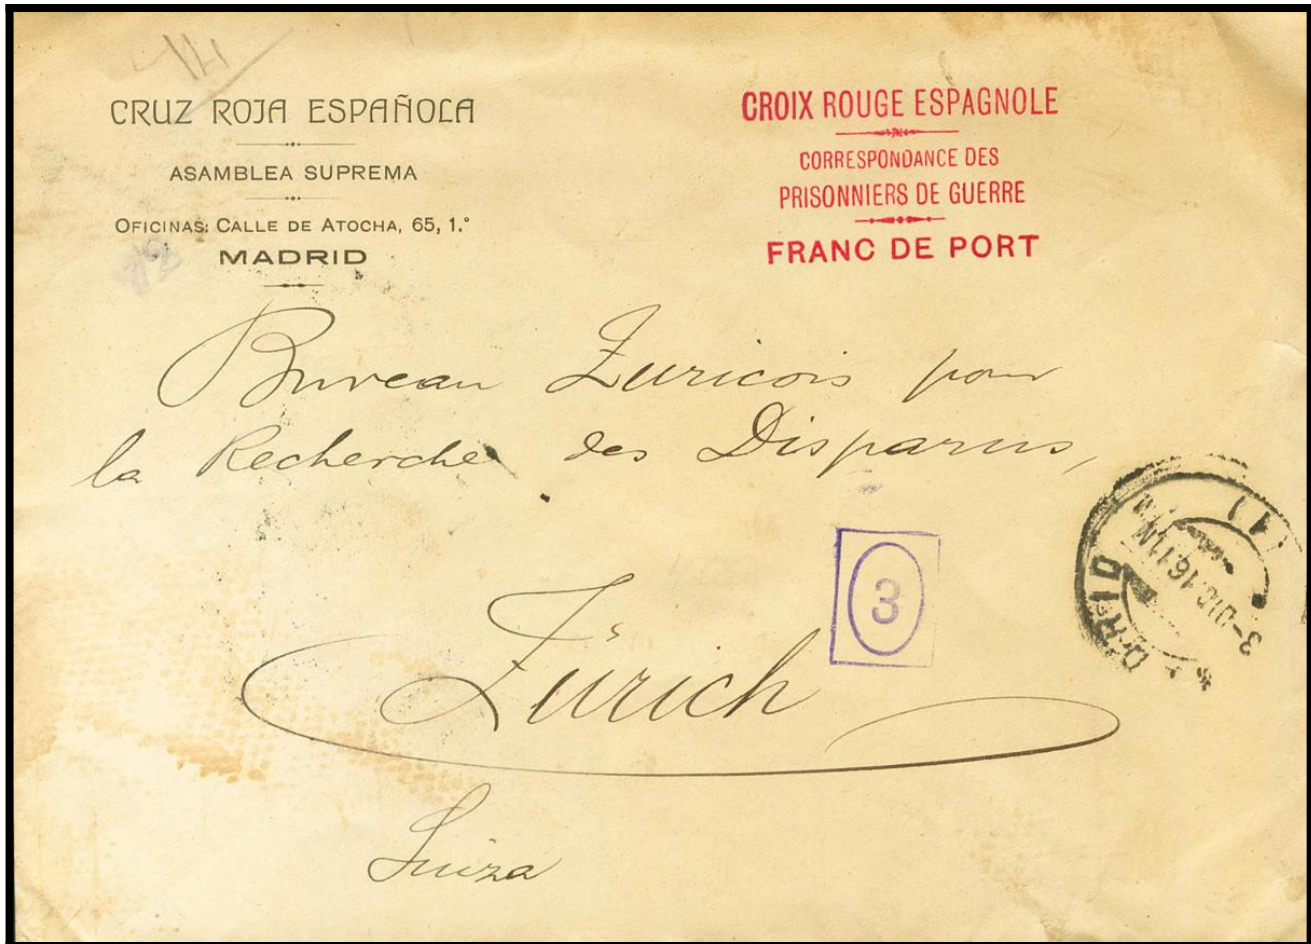 CRUZ ROJA ESPAÑOLA
ASAMBLEA SUPREMA
OFICINAS: CALLE DE ATOCHA, 65, 1.°
MADRID
CROIX ROUGE ESPAGNOLE
CORRESPONDANCE DES
PRISONNIERS DE GUERRE
FRANC DE PORT
Bureau Zuricois pour
la Recherche des Disparus,
Zürich
Suiza
3
3-DIC.16 11